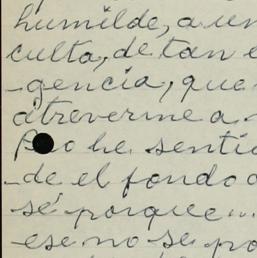 humilde, a un
culta, de tan e
-gencia, que
atreverme a
he senti
-de el fondo
sé porque...
ese no se po